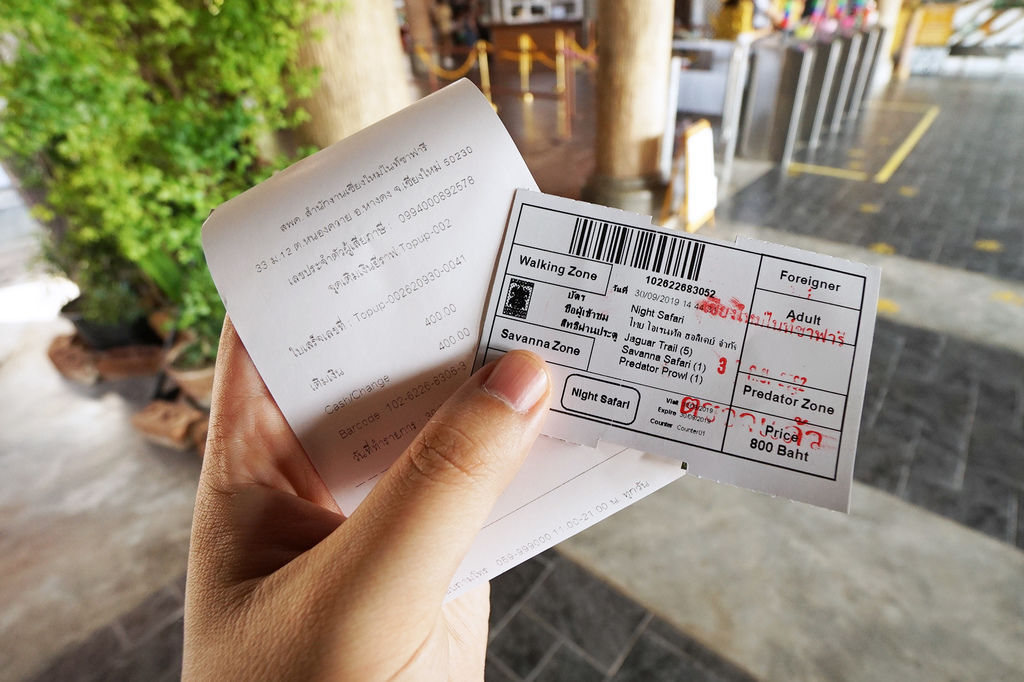 สพค. สำนักงานเชียงใหม่ไนท์ซาฟารี
33 ม.12 ต.หนองควาย อ.หางดง จ.เชียงใหม่ 50230
เลขประจำตัวผู้เสียภาษี : 0994000892578
จุดเติมเงินชั่วคราว:Topup-002
ใบเสร็จเลขที่ : Topup-002620930-0041
400.00
เติมเงิน 400.00
Cash/Change
Barcode 102-6226-8308-3
วันที่ทำรายการ 30
โทร. 089-999000 11.00-21.00 น. ทุกวัน
102622683052
Walking Zone
วันที่ 30/09/2019 14:4
บัตร Night Safari
ชื่อผู้เข้าชม ไทย โอเรนทัล ฮอลิเดย์ จำกัด
สิทธิผ่านประตู Jaguar Trail (5)
Savanna Safari (1)
Predator Prowl (1)
Savanna Zone
Night Safari
Visit
Expire 30/09/2019
Counter Counter01
Foreigner
Adult
Predator Zone
Price
800 Baht
เชียงใหม่ไนท์ซาฟารี
ตรวจแล้ว